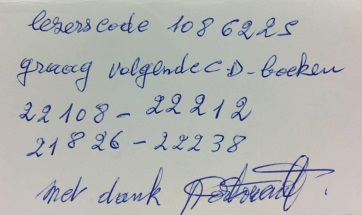 lezerscode 1086225
graag volgende CD-boeken
22108 - 22212
21826 - 22238
met dank